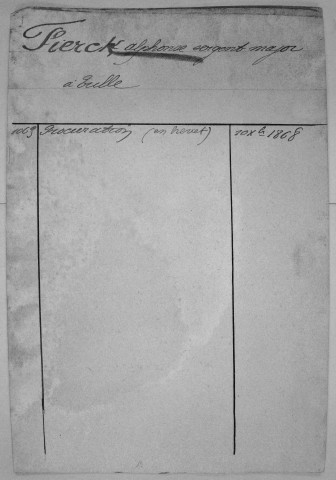 Fierck alphonse sergent major
à Tulle
1069 Procuration (en brevet) 10 xbre 1868